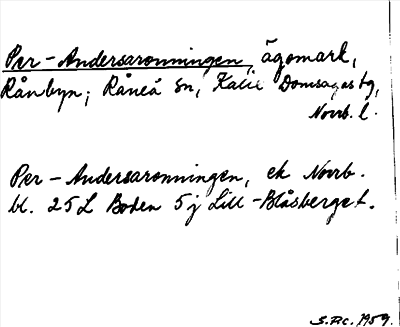 Per-Andersaronningen, ägomark,
Rånbyn, Råneå sn, Kalix Domsagas tg,
Norrb. l.
Per-Andersaronningen, ek Norrb.
bl. 25L Boden 5j Lill-Blåsberget.
S.Pc. 1959.